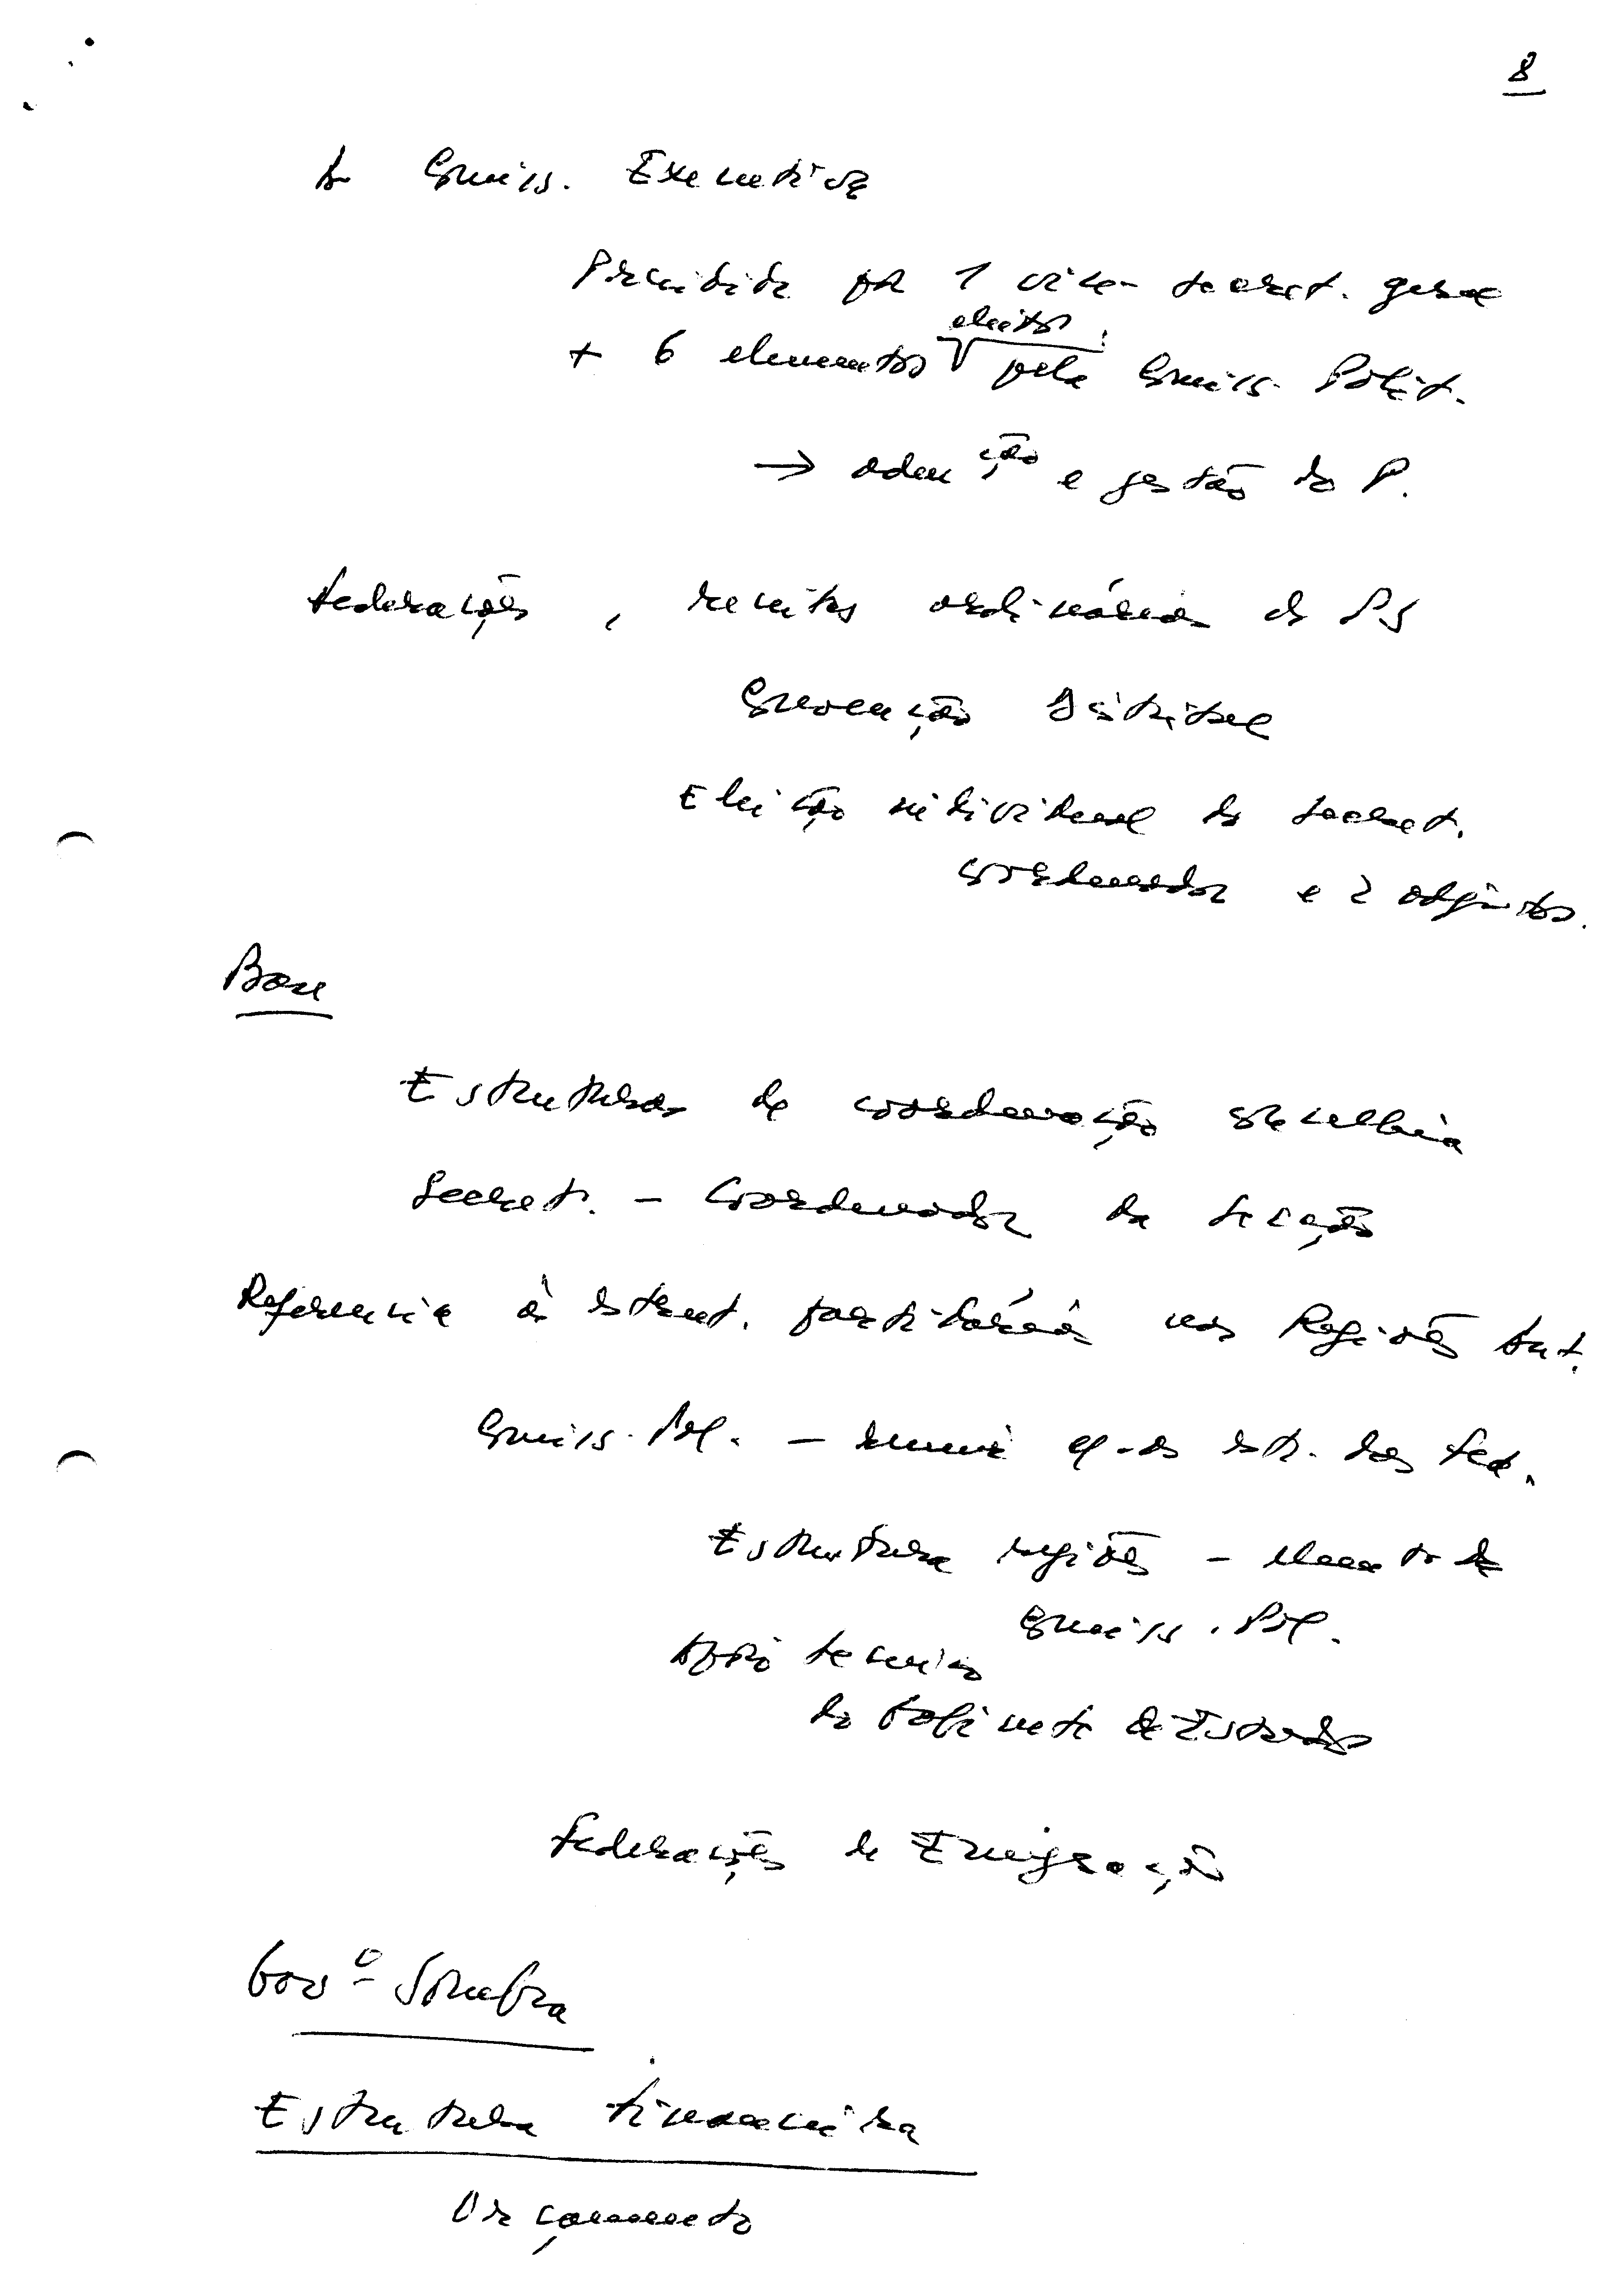 8
A Comiss. Executiva
Presidida por 1 vice-secret. geral
eleitos
+ 6 elementos pela Comiss. Polít.
→ adm ção e gestão do P.
Federações, receitas ordinárias do PS
Convenção Distrital
Eleição individual do secret.
coordenador e 2 adjuntos.
Base
Estruturas de coordenação concelhia
Secret. - Coordenador da secção
Referencia à estrut. partidária nas Regiões Aut.
Comiss. Pol. - reunir est. das Fed.
Estrutura regiões - da
Comiss. Pol.
Apoio tecnico
do Gabinete de Estudos
Federações de Emigração
Govº Sombra
Estrutura financeira
Orçamento